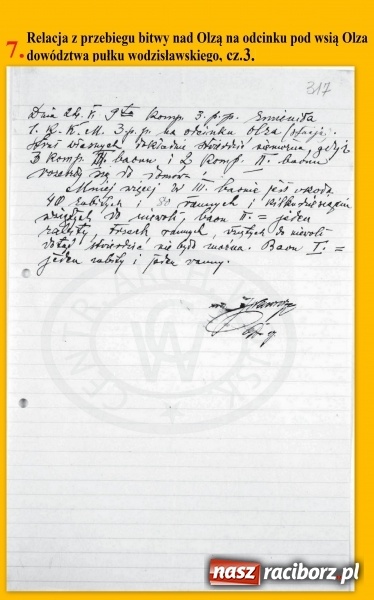 7. Relacja z przebiegu bitwy nad Olzą na odcinku pod wsią Olza
dowództwa pułku wodzisławskiego, cz.3.
317
Dnia 24. V. 9ta komp. 3. p.p. zmieniła
1. K. K. M. 3 p.p. na odcinku Olza
Strat własnych dokładnie stwierdzić niemożna, gdyż
3 komp. III. baonu i 2 komp. II. baonu
się do
Mniej więcej w III. baonie jest
40 zabitych i 50 rannych i kilkudziesięciu
wziętych do niewoli, baon II. = jeden
zabity, trzech rannych, wziętych do niewoli
dotąd stwierdzić nie było można. Baon I. =
jeden zabity i jeden ranny.
CEN
W
SK
nasz raciborz.pl